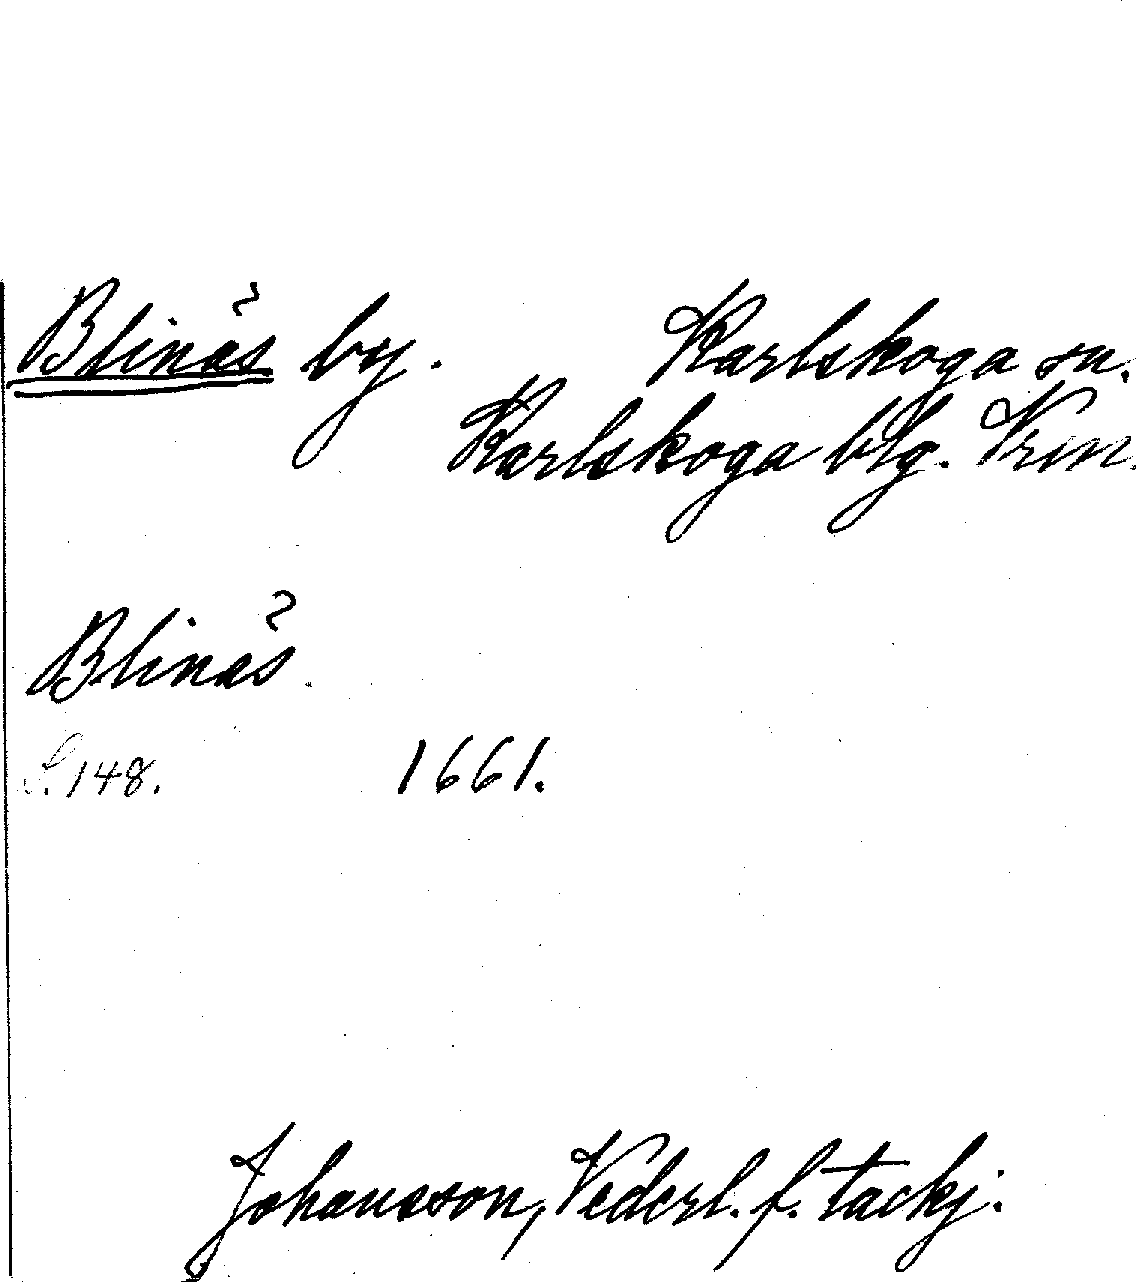 Blinäs by. Karlskoga sn.
Karlskoga blg. Vrm.
Blinäs.
S. 148. 1661.
Johansson, Vederl. f. tackj.